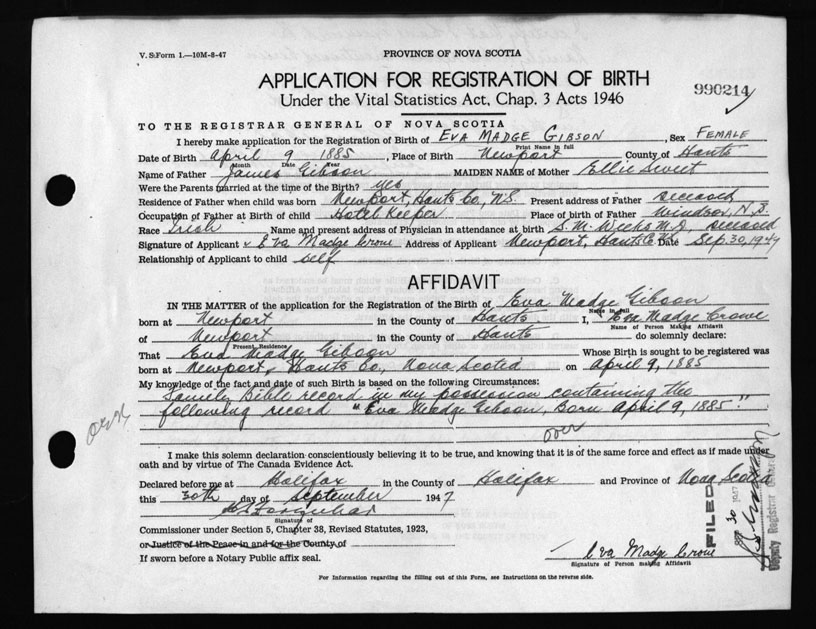 V. S. Form 1.—10M-8-47
PROVINCE OF NOVA SCOTIA
APPLICATION FOR REGISTRATION OF BIRTH
990214
Under the Vital Statistics Act, Chap. 3 Acts 1946
TO THE REGISTRAR GENERAL OF NOVA SCOTIA
I hereby make application for the Registration of Birth of EVA MADGE GIBSON, Sex FEMALE
Print Name in full
Date of Birth April 9 1885, Place of Birth Newport County of Hants
Month Date Year
Name of Father James Gibson MAIDEN NAME of Mother Ellie Sweet
Were the Parents married at the time of the Birth? yes
Residence of Father when child was born Newport, Hants Co, N.S. Present address of Father Deceased
Occupation of Father at Birth of child Hotel Keeper Place of birth of Father Windsor, N.S.
Race Irish Name and present address of Physician in attendance at birth S. M. Weeks M.D, Deceased
Signature of Applicant x Eva Madge Crowe Address of Applicant Newport, Hants Co. N.S. Date Sep. 30, 1947
Relationship of Applicant to child self
AFFIDAVIT
IN THE MATTER of the application for the Registration of the Birth of Eva Madge Gibson
Name in full
born at Newport in the County of Hants I, Eva Madge Crowe
Name of Person Making Affidavit
of Newport in the County of Hants do solemnly declare:
Present Residence
That Eva Madge Gibson Whose Birth is sought to be registered was
born at Newport, Hants Co, Nova Scotia on April 9, 1885
My knowledge of the fact and date of such Birth is based on the following Circumstances:
Family Bible record in my possession containing the
following record "Eva Madge Gibson, Born April 9, 1885."
over
I make this solemn declaration conscientiously believing it to be true, and knowing that it is of the same force and effect as if made under
oath and by virtue of The Canada Evidence Act.
Declared before me at Halifax in the County of Halifax and Province of Nova Scotia
this 30th day of September 1947
Signature of
Commissioner under Section 5, Chapter 38, Revised Statutes, 1923,
or Justice of the Peace in and for the County of
If sworn before a Notary Public affix seal.
Eva Madge Crowe
Signature of Person making Affidavit
For Information regarding the filling out of this Form, see Instructions on the reverse side.
FILED
30 1947
Deputy Registrar General